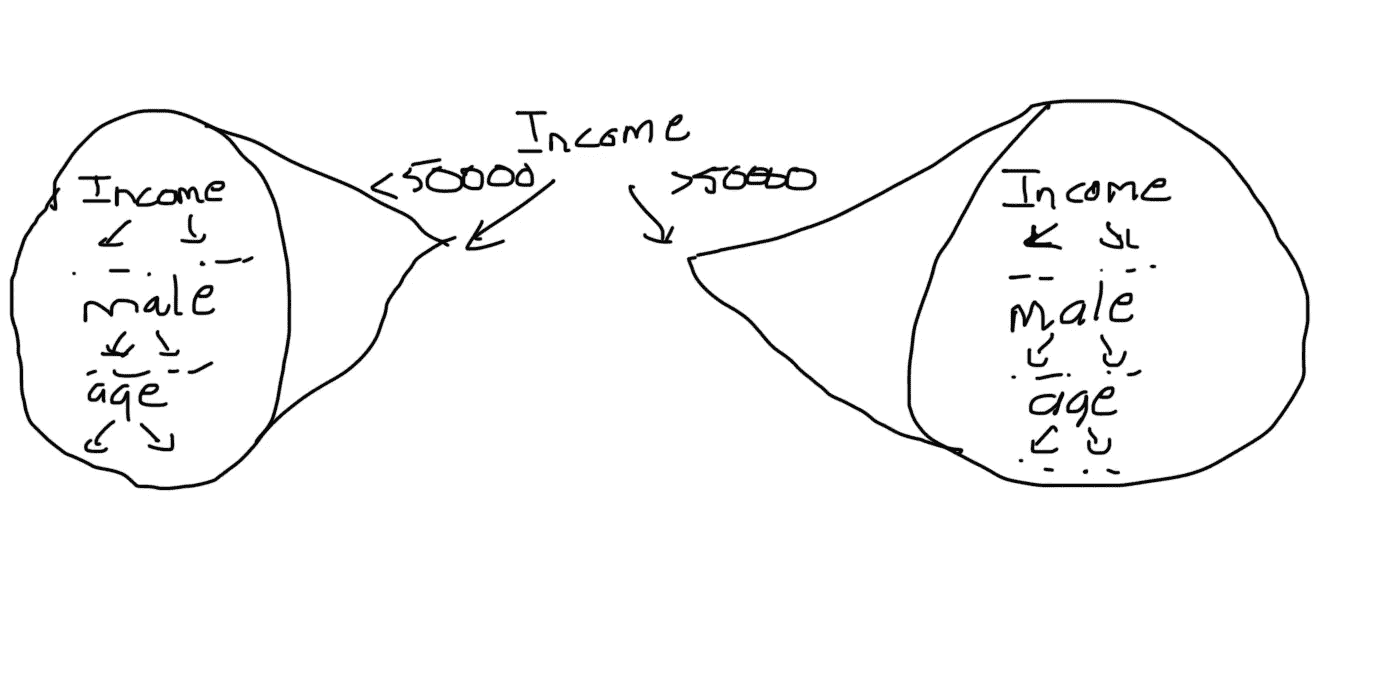 Income
<50000 >50000
Income
male
age
Income
male
age